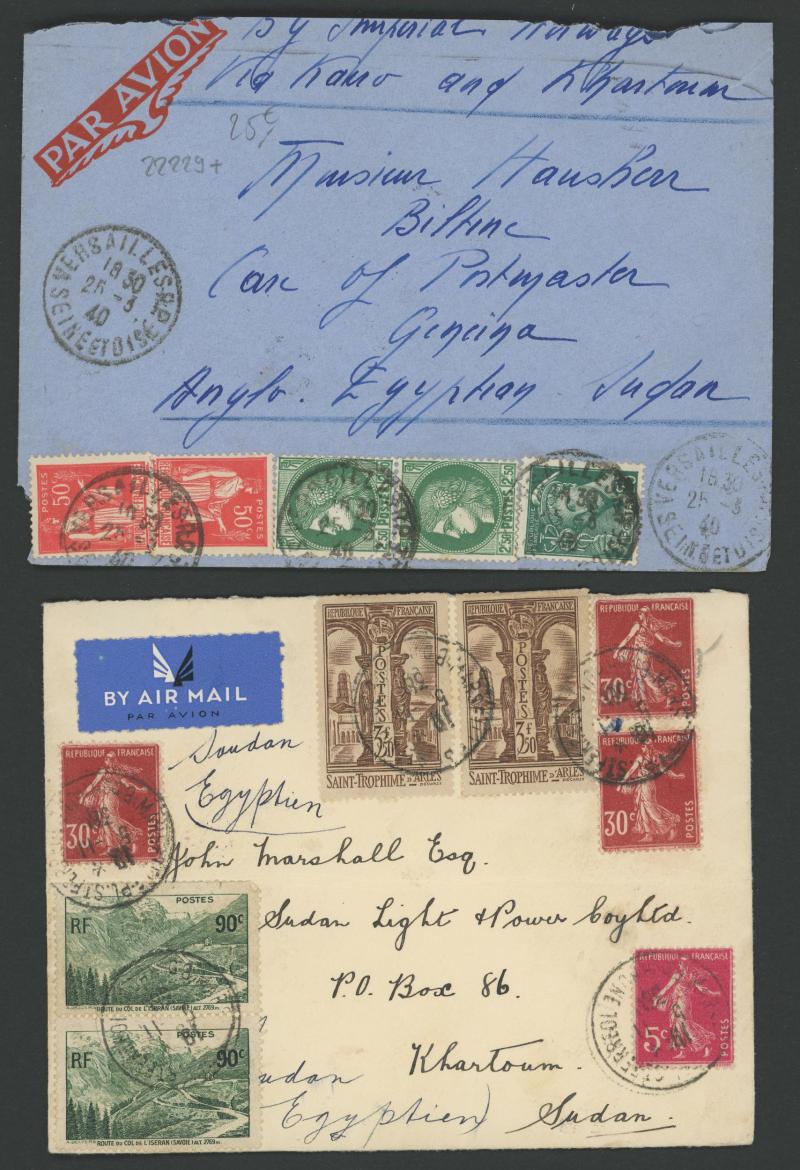 By Imperial Airways
Via Kairo and Khartoum
PAR AVION
25F
22229+
Monsieur Hausherr
Biltine
Care of Postmaster
Geneina
Anglo. Egyptian Sudan
VERSAILLES R.P.
18 30
25 -3
40
SEINE ET OISE
VERSAILLES R.P.
18 30
25 -3
40
SEINE ET OISE
POSTES
50c
POSTES
50c
2F50
2F50
VERSAILLES
18 30
25
40
REPUBLIQUE FRANÇAISE
POSTES
3f50
SAINT-TROPHIME d'ARLES
REPUBLIQUE FRANÇAISE
POSTES
3f50
SAINT-TROPHIME d'ARLES
REPUBLIQUE FRANÇAISE
30c
POSTES
REPUBLIQUE FRANÇAISE
30c
POSTES
BY AIR MAIL
PAR AVION
Soudan
Egyptien
REPUBLIQUE FRANÇAISE
30c
POSTES
John Marshall Esq.
Sudan Light & Power Coy Ltd.
P.O. Box 86.
Khartoum.
Sudan.
POSTES
RF
90c
ROUTE DU COL DE L'ISERAN (SAVOIE) ALT. 2769m.
POSTES
RF
90c
ROUTE DU COL DE L'ISERAN (SAVOIE) ALT. 2769m.
Soudan
Egyptien)
REPUBLIQUE FRANÇAISE
5c
POSTES